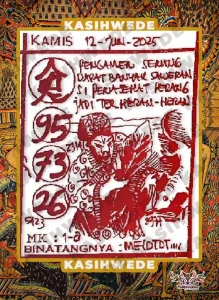 KASIHWEDE
KAMIS 12-JUNI-2025
PENGAMEN SENANG
DAPAT BANYAK SAWERAN
SI PENASEHAT PERANG
JADI TER HERAN-HERAN
95
73
26
MK : 1-8
BINATANGNYA : MELOTOT!!!
KASIHWEDE